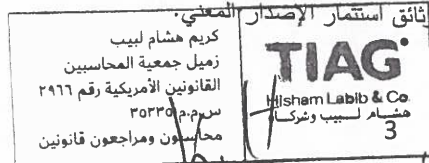 وثائق استثمار الإصدار المعني.
كريم هشام لبيب
زميل جمعية المحاسبين
القانونين الأمريكية رقم ٢٩٦٦
س.م.م ٣٥٢٣٥
محاسبون ومراجعون قانونين
TIAG
Hisham Labib & Co.
هشام لبيب وشركاه
3